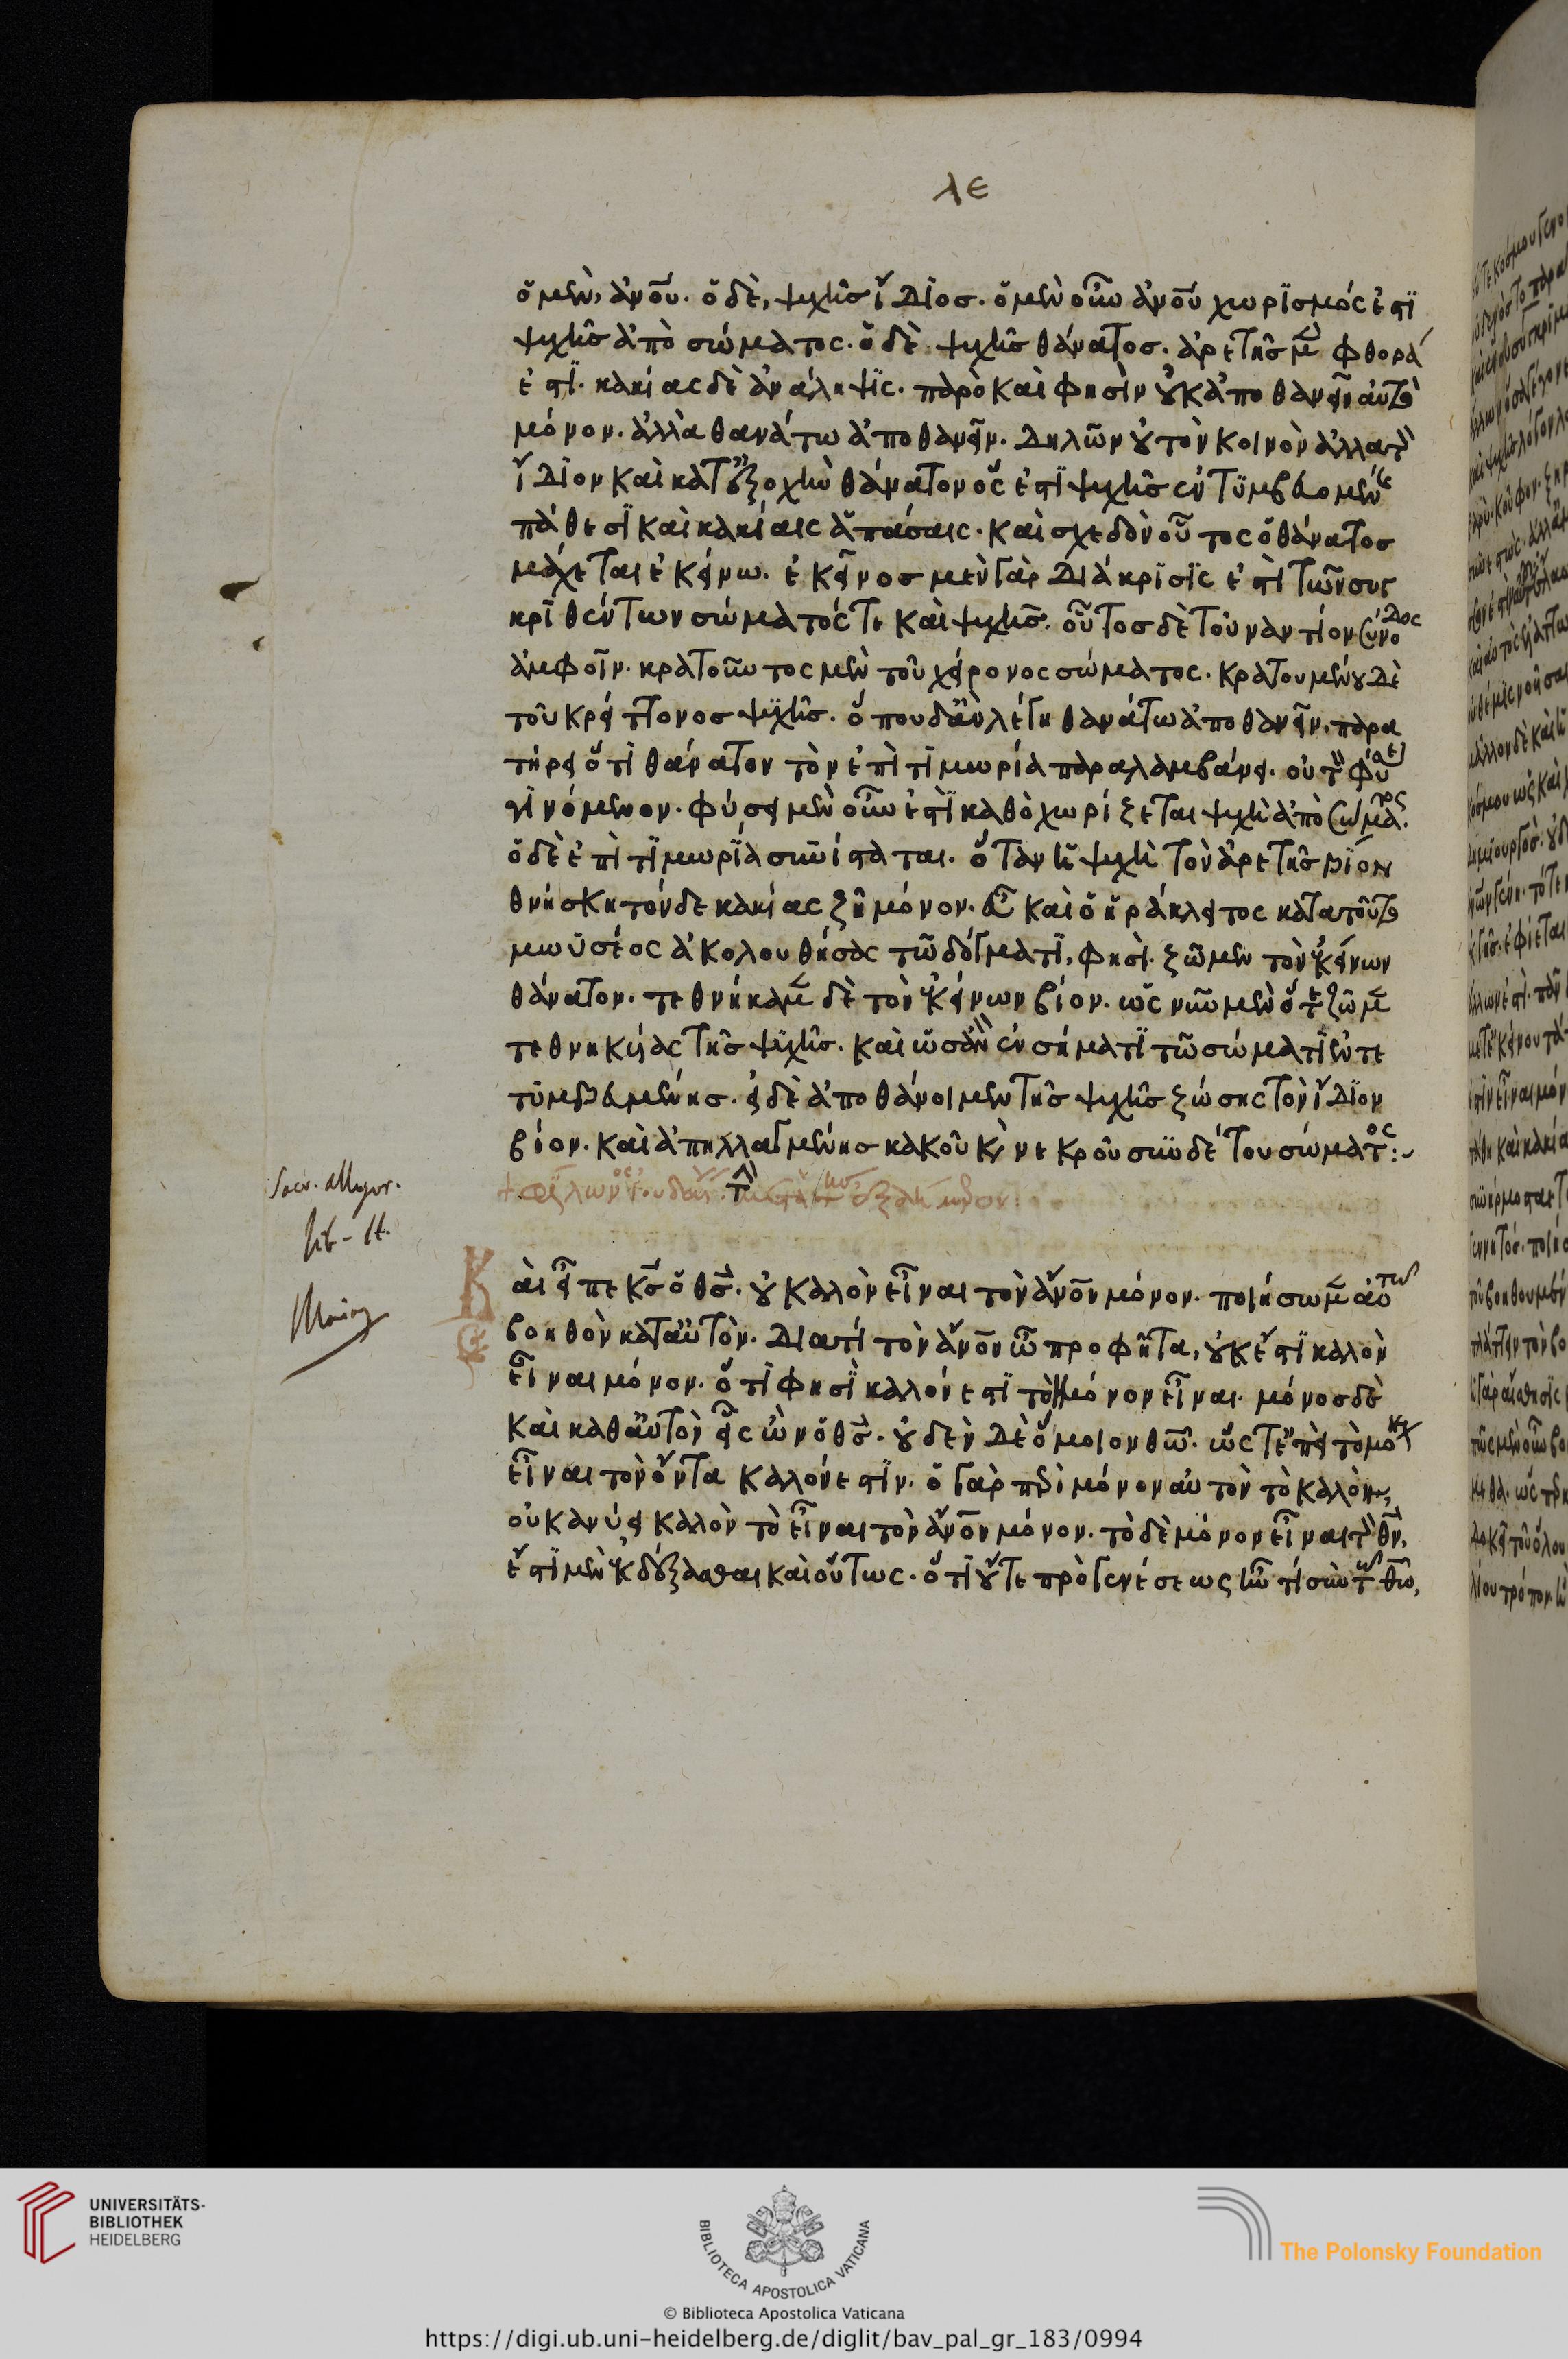 λε
ὁ μὲν, ἀνου. ὁ δὲ, ψυχῆς ἴδιος. ὁ μὲν οὖν ἀνου χωρϊσμός ἐστϊ
ψυχῆς ἀπὸ σώματος. ὁ δὲ ψυχῆς θάνατος. ἀρετῆς μὲν φθορά
ἐστϊ. κακίας δὲ ἀνάληψϊς. παρὸ καὶ φησὶν οὐκ ἀποθανεῖν αὐτὸ
μόνον. ἀλλὰ θανάτω ἀποθανεῖν. δηλῶν οὐ τὸν κοινὸν ἀλλὰ τὸν
ἴδιον καὶ κατ' ἐξοχὴν θάνατον ὅς ἐστϊ ψυχῆς ἐντυμβευομένης
πάθεσϊ καὶ κακίαις ἁπάσαις. καὶ σχεδὸν οὗτος ὁ θάνατος
μάχεται ἐκείνω. ἐκεῖνος μὲν γὰρ διάκρϊσϊς ἐστὶ τῶν συγ
κριθέντων σώματός τε καὶ ψυχῆς. οὗτος δὲ τοὐναντίον σύνοδος
ἀμφοῖν. κρατοῦντος μὲν τοῦ χείρονος σώματος. κρατουμένου δὲ
τοῦ κρείττονος ψυχῆς. ὅπου δ' ἂν λέγη θανάτω ἀποθανεῖν. παρα
τήρει ὅτι θάνατον τὸν ἐπὶ τιμωρία παραλαμβάνει. οὐ τὸν φύσει
γινόμενον. φύσει μὲν οὖν ἐστϊ καθ' ὃ χωρίζεται ψυχὴ ἀπὸ σώματος.
ὁ δὲ ἐπὶ τιμωρϊα συνίσταται. ὅταν ἡ ψυχὴ τὸν ἀρετῆς βίον
θνήσκη τὸν δὲ κακίας ζῆ μόνον. εὖ καὶ ὁ ἡράκλειτος κατὰ τοῦτο
μωϋσέος ἀκολουθήσας τῶ δόγματϊ, φησί. ζῶμεν τὸν ἐκείνων
θάνατον. τεθνήκαμεν δὲ τὸν ἐκείνων βίον. ὡς νῦν μὲν ὅτε ζῶμεν
τεθνηκυίας τῆς ψυχῆς. καὶ ὡσὰν ἐν σήματϊ τῶ σώματϊ ἐντε
τυμβευμένης. εἰ δὲ ἀποθάνοιμεν τῆς ψυχῆς ζώσης τὸν ἴδϊον
βίον. καὶ ἀπηλλαγμένης κακοῦ καὶ νεκροῦ συνδέτου σώματος:
Sacr. allegor.
lib. II.
Καὶ εἶπε κς ὁ θς. οὐ καλὸν εἶναι τὸν ἄνον μόνον. ποιήσωμεν αὐτῶ
βοηθὸν κατ' αὐτὸν. διατί τὸν ἄνον ὦ προφῆτα, οὐκ ἔστϊ καλὸν
εἶναι μόνον. ὅτϊ φησϊ καλόν ἐστϊ τὸν μόνον εἶναι. μόνος δὲ
καὶ καθ' αὑτὸν εἷς ὢν ὁ θς. οὐδὲν δὲ ὅμοιον θω. ὥστε ἐπεὶ τὸ μόνον
εἶναι τὸν ὄντα καλόν ἐστϊν. ὁ γὰρ περὶ μόνον αὐτὸν τὸ καλὸν,
οὐκ ἂν εἴη καλὸν τὸ εἶναι τὸν ἄνον μόνον. τὸ δὲ μόνον εἶναι τὸν θν,
ἔστϊ μὲν ἐκδέξασθαι καὶ οὕτως. ὅτϊ οὔτε πρὸ γενέσεως ἦν τί σὺν τῶ θω,
UNIVERSITÄTS-
BIBLIOTHEK
HEIDELBERG
BIBLIOTECA APOSTOLICA VATICANA
The Polonsky Foundation
© Biblioteca Apostolica Vaticana
https://digi.ub.uni-heidelberg.de/diglit/bav_pal_gr_183/0994